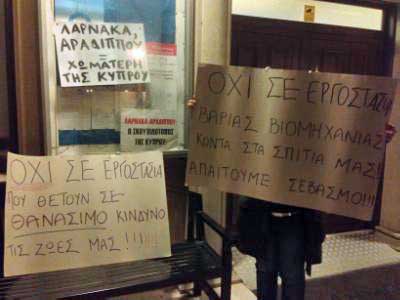 ΛΑΡΝΑΚΑ,
ΑΡΑΔΙΠΠΟΥ
=
ΧΩΜΑΤΕΡΗ
ΤΗΣ ΚΥΠΡΟΥ
ΛΑΡΝΑΚΑ-ΑΡΑΔΙΠΠΟΥ
Ο ΣΚΟΥΠΙΔΟΤΟΠΟΣ
ΤΗΣ ΚΥΠΡΟΥ
ΟΧΙ ΣΕ ΕΡΓΟΣΤΑΣΙΑ
ΒΑΡΙΑΣ ΒΙΟΜΗΧΑΝΙΑΣ
ΚΟΝΤΑ ΣΤΑ ΣΠΙΤΙΑ ΜΑΣ!
ΑΠΑΙΤΟΥΜΕ ΣΕΒΑΣΜΟ!!!
ΟΧΙ ΣΕ ΕΡΓΟΣΤΑΣΙΑ
ΠΟΥ ΘΕΤΟΥΝ ΣΕ
ΘΑΝΑΣΙΜΟ ΚΙΝΔΥΝΟ
ΤΙΣ ΖΩΕΣ ΜΑΣ!!!!